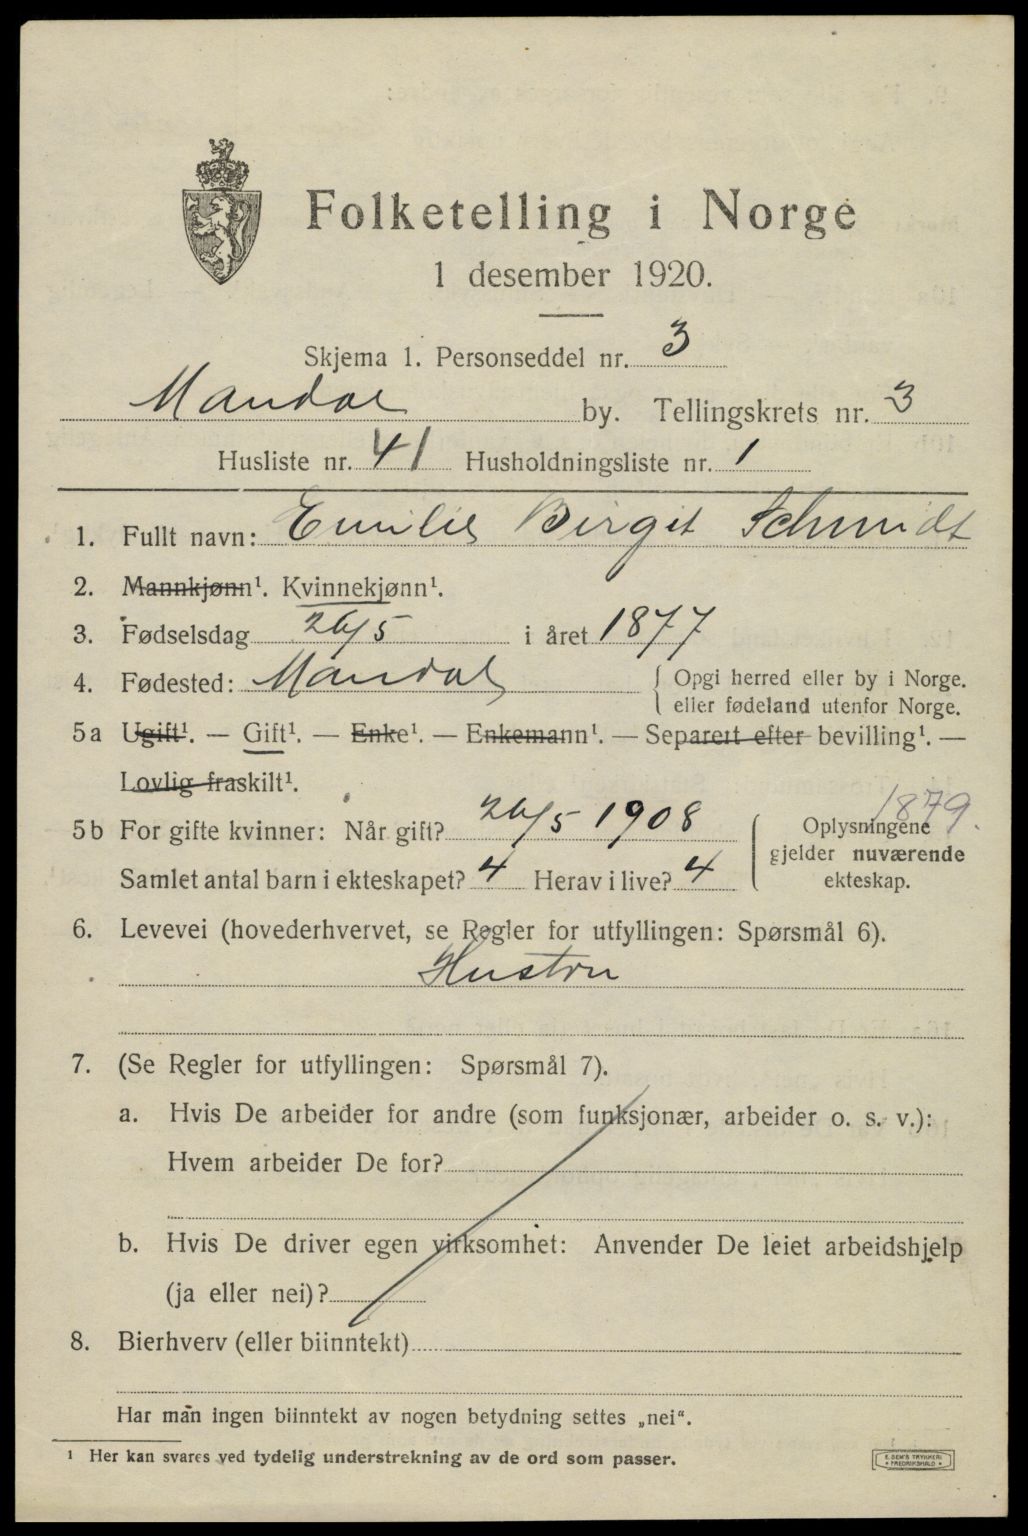 Folketelling i Norge
1 desember 1920.
Skjema 1. Personseddel nr. 3
Mandal by. Tellingskrets nr. 3
Husliste nr. 41 Husholdningsliste nr. 1
1. Fullt navn: Emilie Birgit Schmidt
2. Mannkjønn¹. Kvinnekjønn¹.
3. Fødselsdag 26/5 i året 1877
4. Fødested: Mandal { Opgi herred eller by i Norge.
eller fødeland utenfor Norge.
5a Ugift¹. — Gift¹. — Enke¹. — Enkemann¹. — Separert efter bevilling¹. —
Lovlig fraskilt¹.
1879.
5b For gifte kvinner: Når gift? 26/5 1908 Oplysningene
gjelder nuværende
Samlet antal barn i ekteskapet? 4 Herav i live? 4 ekteskap.
6. Levevei (hovederhvervet, se Regler for utfyllingen: Spørsmål 6).
Hustru
7. (Se Regler for utfyllingen: Spørsmål 7).
a. Hvis De arbeider for andre (som funksjonær, arbeider o. s. v.):
Hvem arbeider De for?
b. Hvis De driver egen virksomhet: Anvender De leiet arbeidshjelp
(ja eller nei)?
8. Bierhverv (eller biinntekt)
Har man ingen biinntekt av nogen betydning settes „nei“.
¹ Her kan svares ved tydelig understrekning av de ord som passer.
E. SEM'S TRYKKERI
FREDRIKSHALD